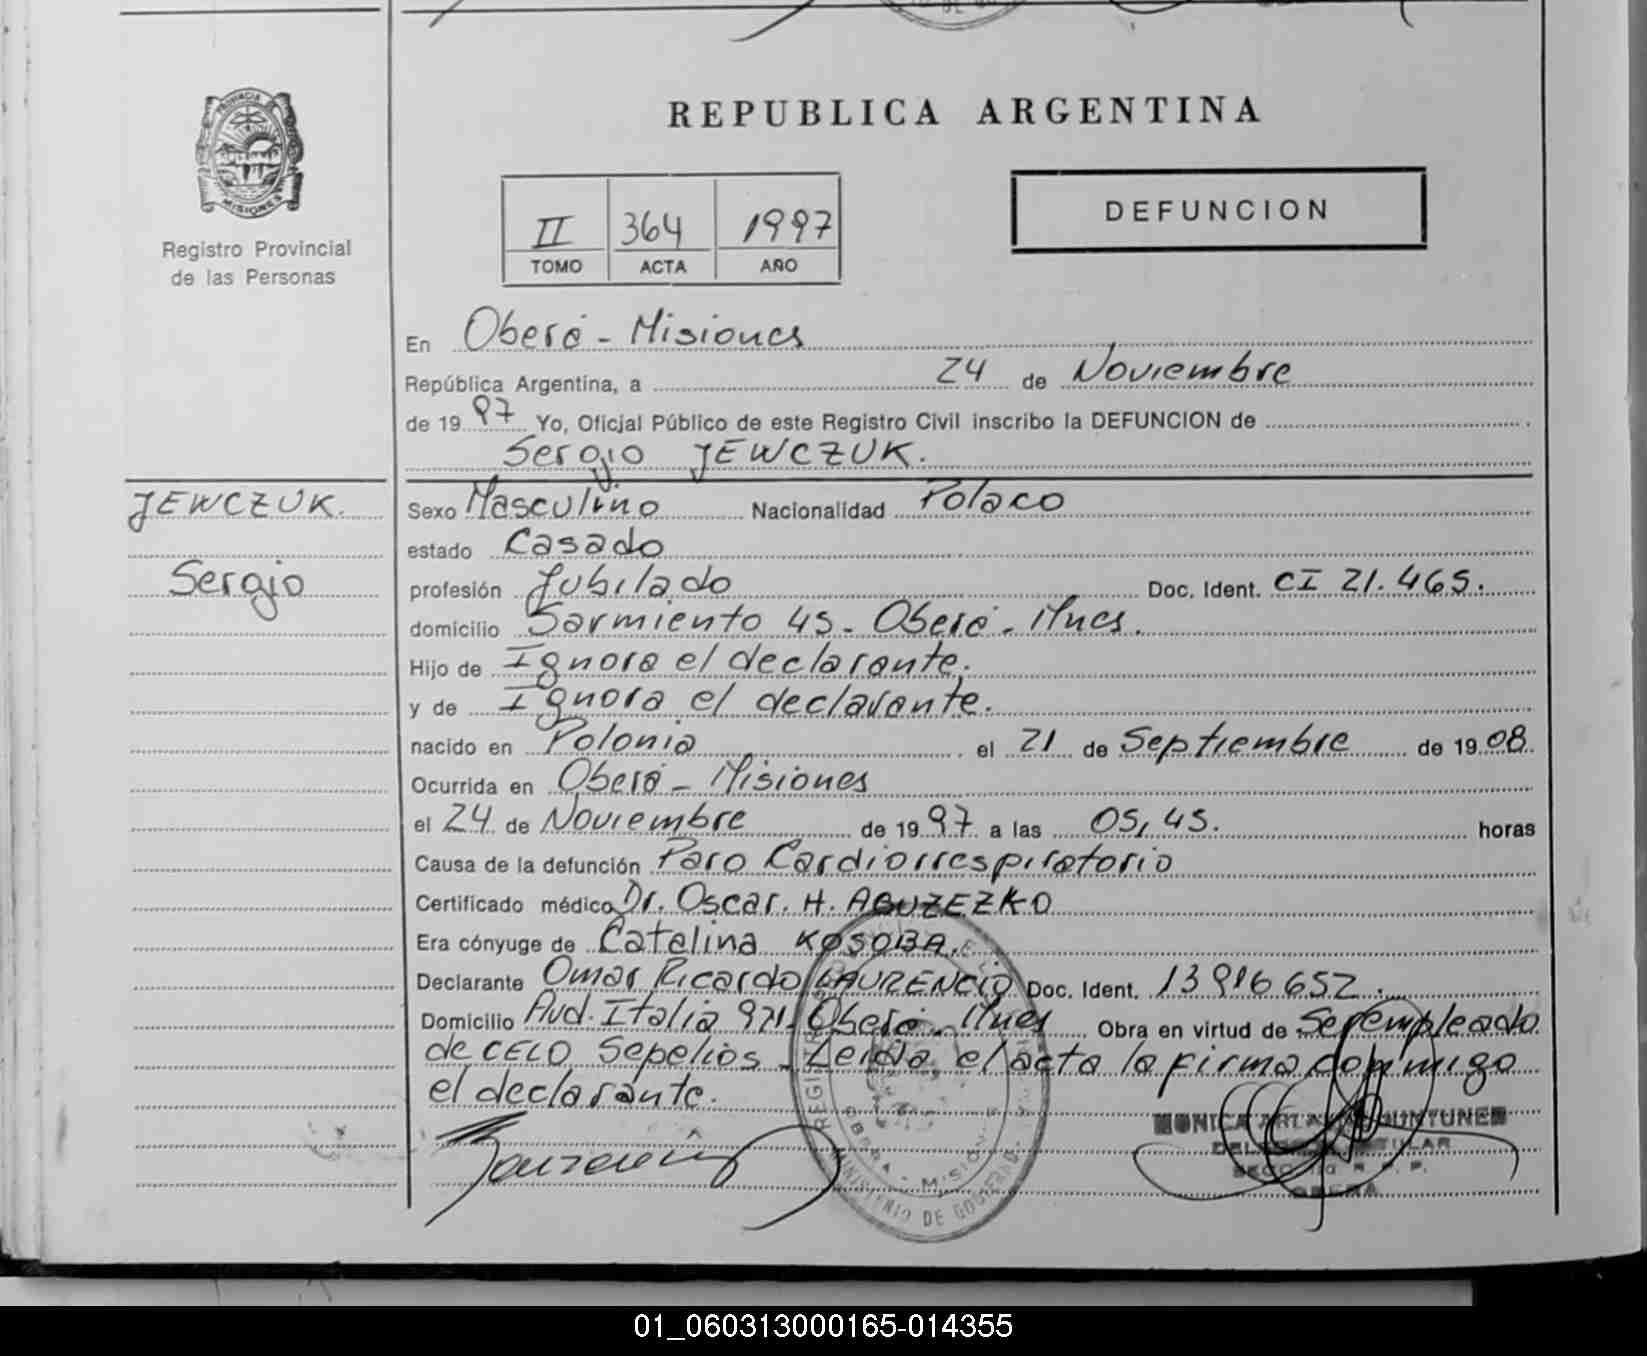 REPUBLICA ARGENTINA
PROVINCIA DE
MISIONES
Registro Provincial
de las Personas
II 364 1997
TOMO ACTA AÑO
DEFUNCION
En Oberá - Misiones
República Argentina, a 24 de Noviembre
de 1997 Yo, Oficial Público de este Registro Civil inscribo la DEFUNCION de
Sergio JEWCZUK.
JEWCZUK.
Sergio
Sexo Masculino Nacionalidad Polaco
estado Casado
profesión Jubilado Doc. Ident. CI 21.465.
domicilio Sarmiento 45 - Oberá - Mnes.
Hijo de Ignora el declarante.
y de Ignora el declarante.
nacido en Polonia el 21 de Septiembre de 1908
Ocurrida en Oberá - Misiones
el 24 de Noviembre de 1997 a las 05,45. horas
Causa de la defunción Paro Cardiorrespiratorio
Certificado médico Dr. Oscar. H. AGUZEZKO
Era cónyuge de Catalina KOSOBA.
Declarante Omar Ricardo LAURENCIO Doc. Ident. 13916652.
Domicilio Avd. Italia 921 - Oberá - Mnes Obra en virtud de Ser empleado
de CELO Sepelios - Leida el acta la firma conmigo
el declarante.
OBERA - MISIONES
MINISTERIO DE GOBIERNO
MONICA
OBERA
01_060313000165-014355